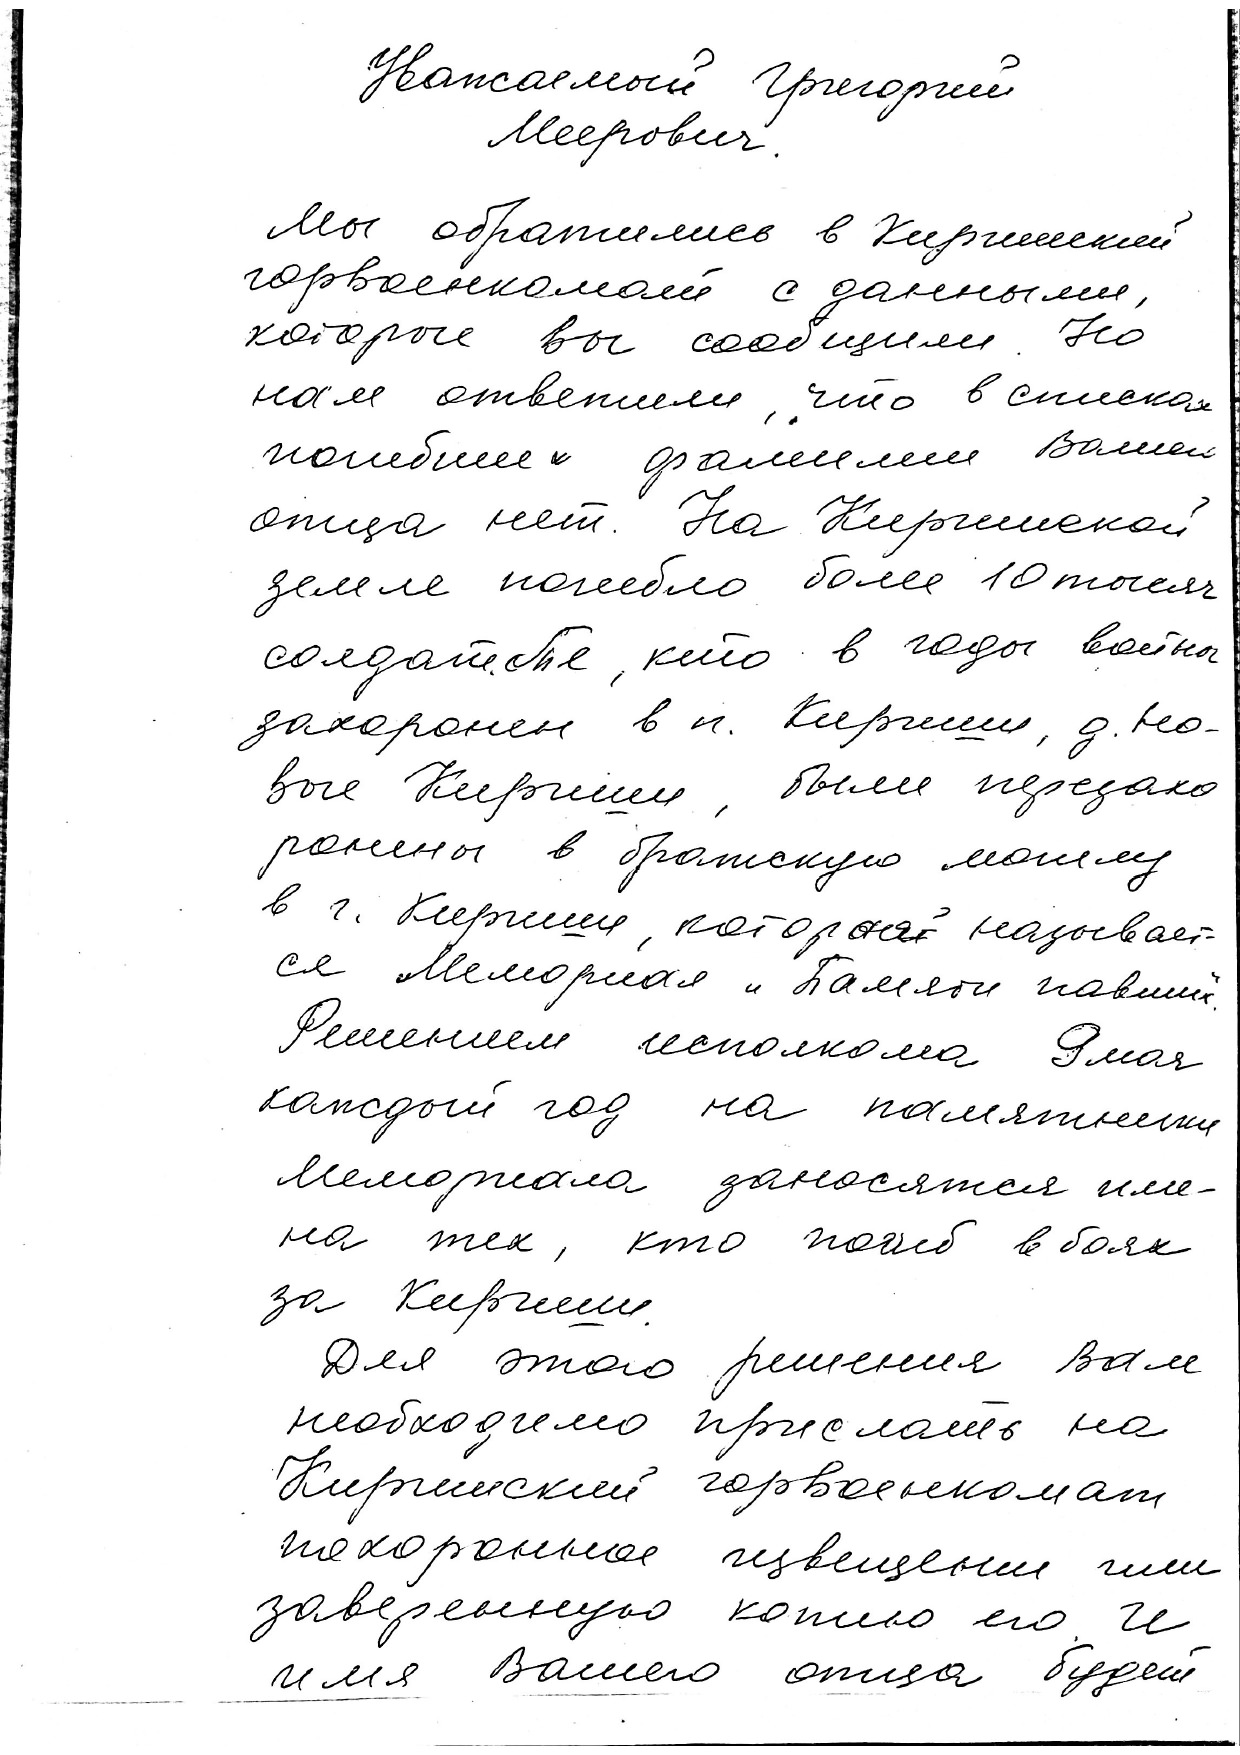 Уважаемый Григорий
Меерович.
Мы обратились в Киришский
горвоенкомат с данными,
которые вы сообщили. Но
нам ответили, что в списках
погибших фамилии Вашего
отца нет. На Киришской
земле погибло более 10 тысяч
солдат. Те, кто в годы войны
захоронен в п. Кириши, д. Но-
вые Кириши, были перезахо
ронены в братскую могилу
в г. Кириши, которая называет-
ся Мемориал "Памяти павших".
Решением исполкома 9 мая
каждый год на памятники
Мемориала заносятся име-
на тех, кто погиб в боях
за Кириши.
Для этого решения Вам
необходимо прислать на
Киришский горвоенкомат
похоронное извещение или
заверенную копию его. И
имя Вашего отца будет